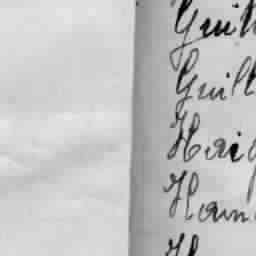 Guil
Guill
Haig
Ham
H